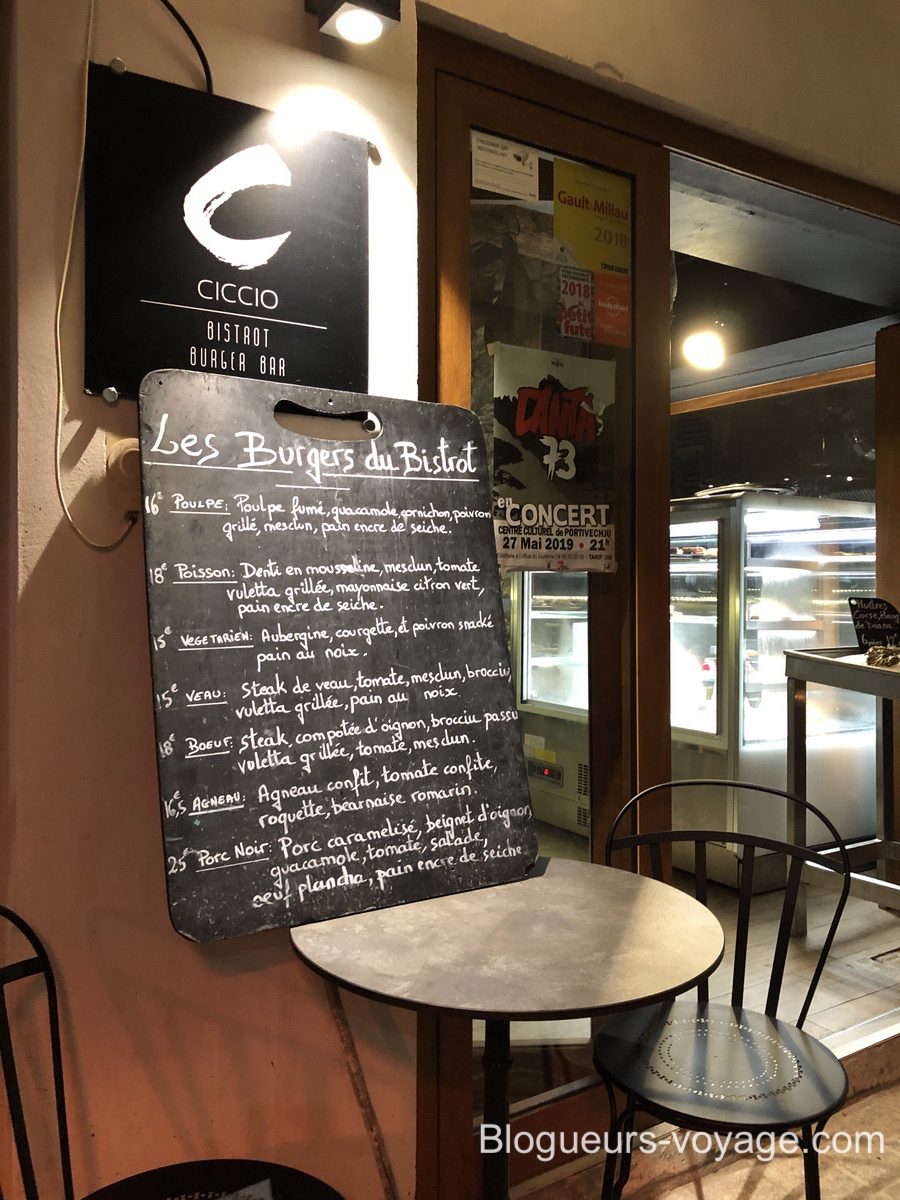 C
CICCIO
BISTROT
BURGER BAR
Les Burgers du Bistrot
16€ POULPE: Poulpe fumé, guacamole, cornichon, poivron
grillé, mesclun, pain encre de seiche.
18€ POISSON: Denti en mousseline, mesclun, tomate
vuletta grillée, mayonnaise citron vert,
pain encre de seiche.
15€ VEGETARIEN: Aubergine, courgette, et poivron snacké
pain au noix.
15€ VEAU: Steak de veau, tomate, mesclun, brocciu,
vuletta grillée, pain au noix.
18€ BOEUF: Steak, compotée d'oignon, brocciu passu
vuletta grillée, tomate, mesclun.
16,5€ AGNEAU: Agneau confit, tomate confite,
roquette, béarnaise romarin.
25€ PORC NOIR: Porc caramelisé, beignet d'oignon,
guacamole, tomate, salade,
oeuf plancha, pain encre de seiche
Gault&Millau
2018
2018
petit
futé
CANTA
73
en
CONCERT
CENTRE CULTUREL de PORTIVECHJU
27 Mai 2019 • 21h
Huîtres
Corse, étang
de Diana
Blogueurs-voyage.com